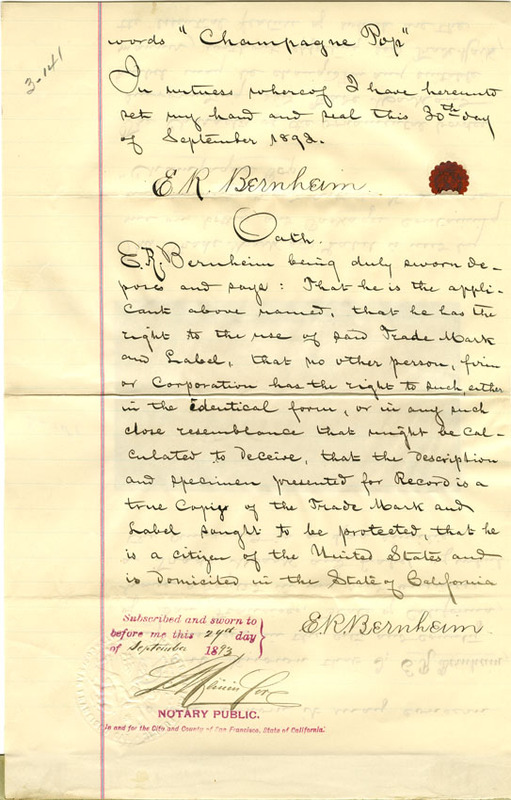 3-141
words "Champagne Pop"
In witness whereof I have hereunto
set my hand and seal this 30th day
of September 1893.
E. R. Bernheim.
Oath.
E. R. Bernheim being duly sworn de-
poses and says: That he is the appli-
cant above named, that he has the
right to the use of said Trade Mark
and Label, that no other person, firm
or Corporation has the right to such, either
in the identical form, or in any such
close resemblance that might be cal-
culated to deceive, that the description
and specimen presented for Record is a
true Copy of the Trade Mark and
Label sought to be protected, that he
is a citizen of the United States and
is domiciled in the State of California
E. R. Bernheim.
Subscribed and sworn to
before me this 29th day
of September 1893
NOTARY PUBLIC.
In and for the City and County of San Francisco, State of California.